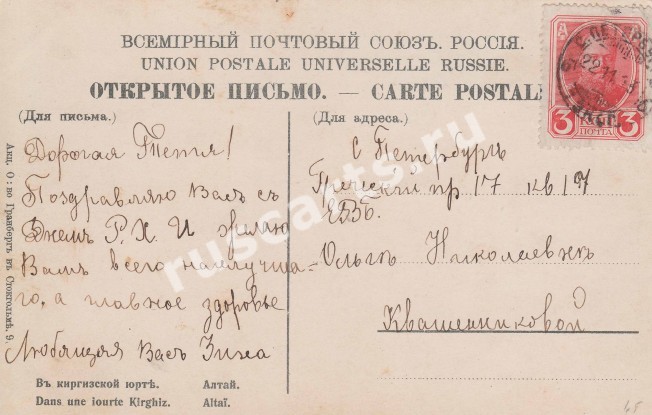 ВСЕМІРНЫЙ ПОЧТОВЫЙ СОЮЗЪ. РОССІЯ.
UNION POSTALE UNIVERSELLE RUSSIE.
ОТКРЫТОЕ ПИСЬМО. — CARTE POSTALE
(Для письма.)
Дорогая Тетя!
Поздравляю Васъ съ
Днемъ Р. Х. И желаю
Вамъ всего наилучша-
го, а главное здоровье
Любящая Васъ Зина
Въ киргизской юртѣ. Алтай.
Dans une iourte Kirghiz. Altaï.
Акц. О:во Гранбергъ въ Стокгольмѣ. 9.
(Для адреса.)
С Петербургъ
пр 17 кв 19
Ольгѣ Николаевнѣ
Квашенниковой
3 ПОЧТА 3
22 11
ruscarts.ru
45